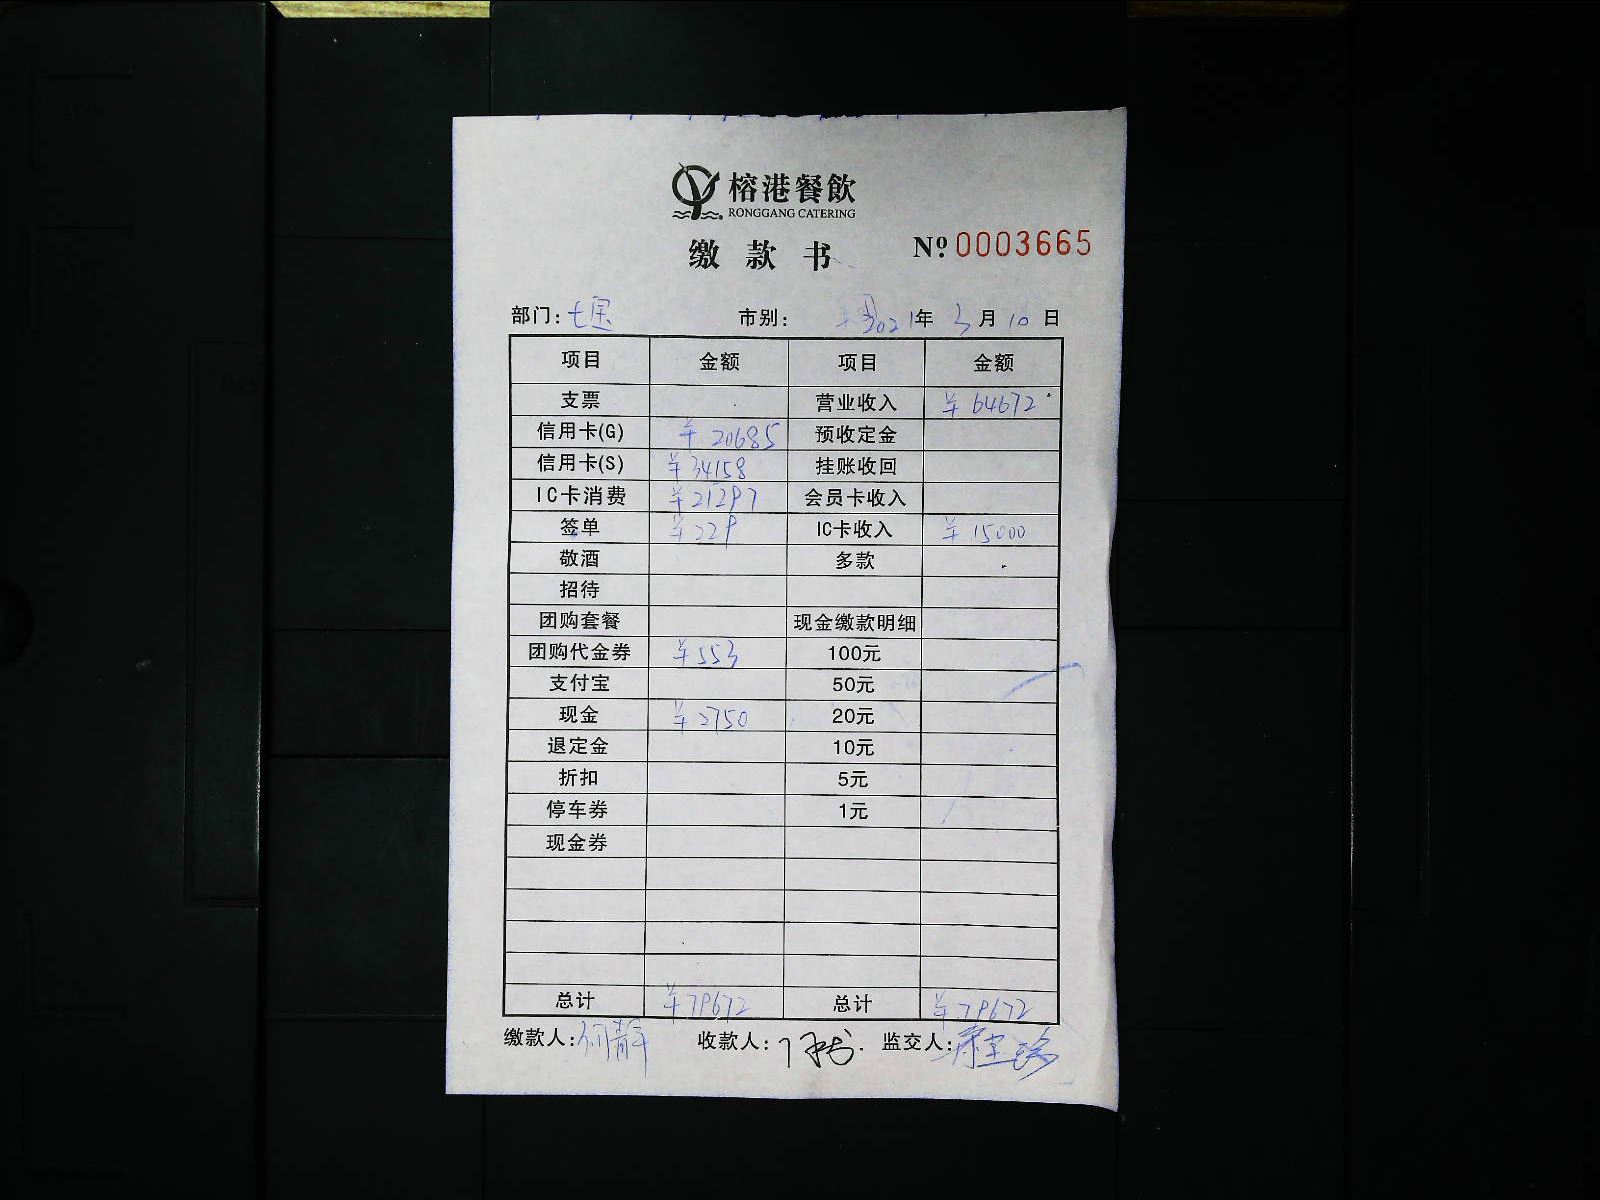 榕港餐飲
RONGGANG CATERING
缴款书 № 0003665
部门: 七宝 市别: 2021年 3月 10日
项目 金额 项目 金额
支票 营业收入 ¥64672
信用卡(G) ¥20685 预收定金
信用卡(S) ¥34158 挂账收回
IC卡消费 ¥21297 会员卡收入
签单 ¥229 IC卡收入 ¥15000
敬酒 多款
招待
团购套餐 现金缴款明细
团购代金券 ¥553 100元
支付宝 50元
现金 ¥2750 20元
退定金 10元
折扣 5元
停车券 1元
现金券
总计 ¥79672 总计 ¥79672
缴款人: 何静 收款人: 监交人: